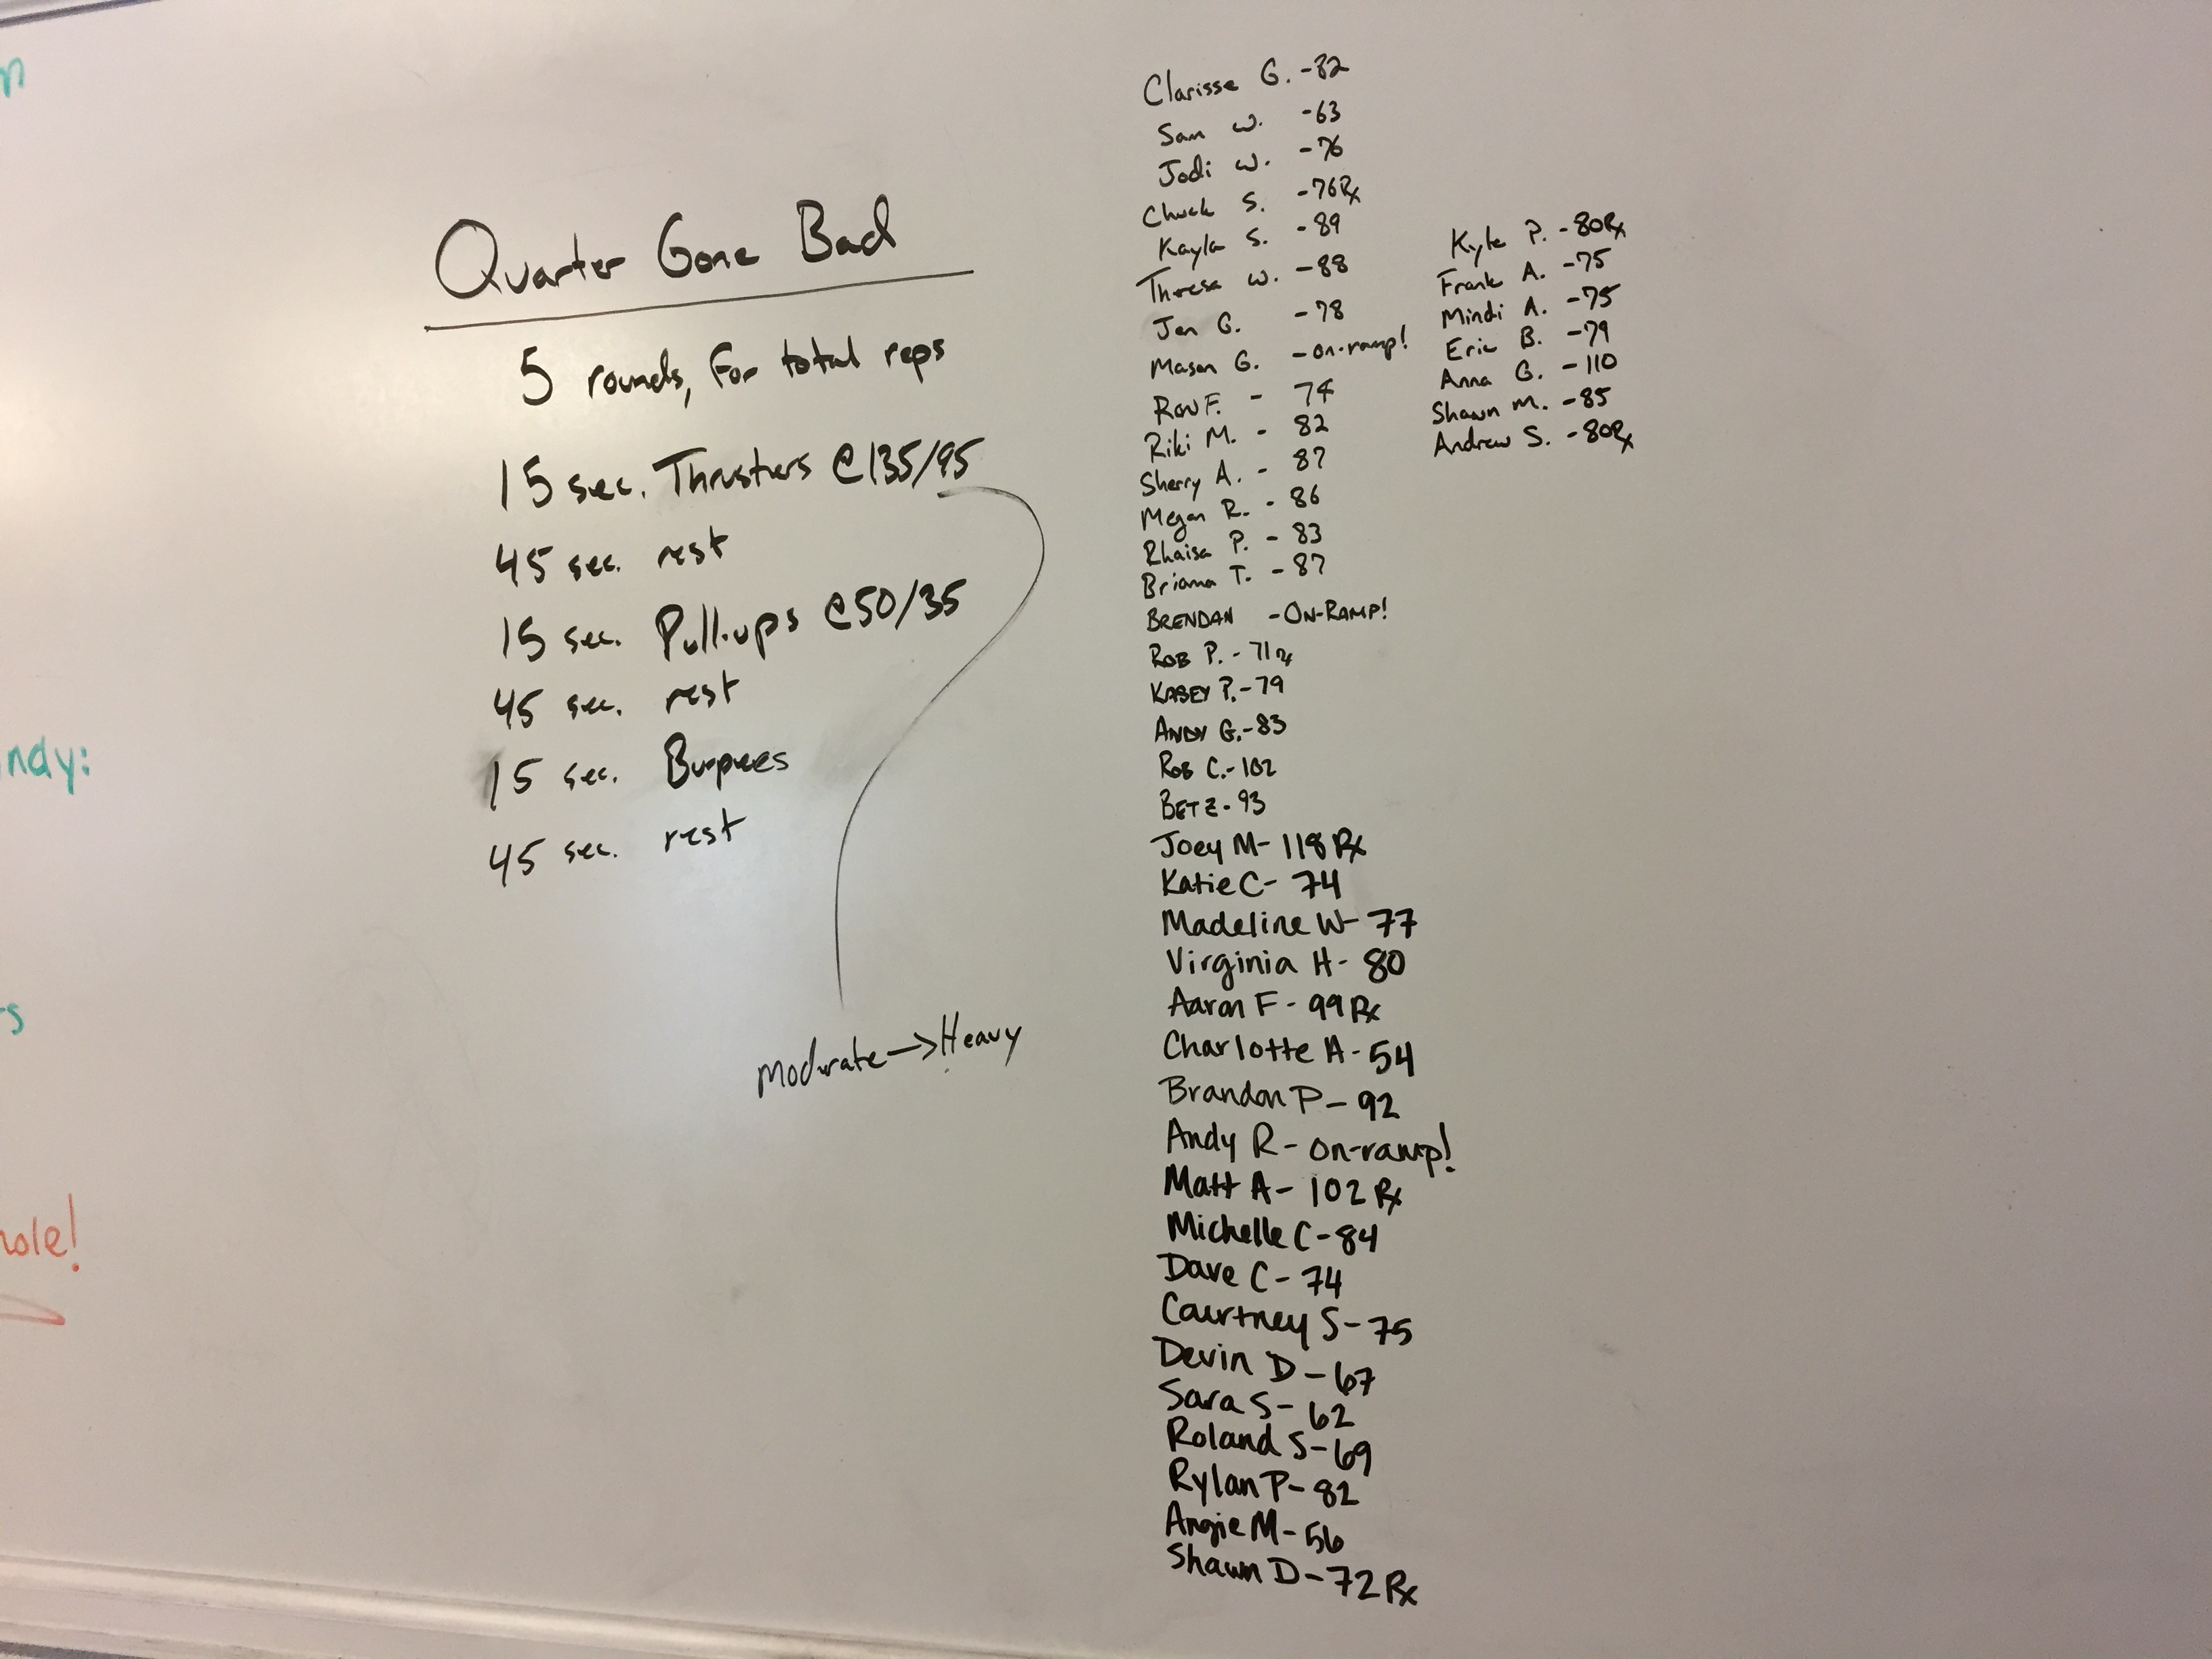 n
ndy:
s
hole!
Quarter Gone Bad
5 rounds, For total reps
15 sec. Thrusters @ 135/95
45 sec. rest
15 sec. Pull-ups @ 50/35
45 sec. rest
15 sec. Burpees
45 sec. rest
moderate → Heavy
Clarisse G. - 82
Sam W. - 63
Jodi W. - 76
Chuck S. - 76 Rx
Kayla S. - 89
Theresa W. - 88
Jen G. - 78
Mason G. - on-ramp!
Ron F. - 74
Riki M. - 82
Sherry A. - 87
Megan R. - 86
Rhaisa P. - 83
Briana T. - 87
BRENDAN - ON-RAMP!
ROB P. - 71 Rx
KASEY P. - 79
ANDY G. - 83
ROB C. - 102
BETZ - 93
Joey M - 118 Rx
Katie C - 74
Madeline W - 77
Virginia H - 80
Aaron F - 99 Rx
Charlotte A - 54
Brandon P - 92
Andy R - on-ramp!
Matt A - 102 Rx
Michelle C - 84
Dave C - 74
Courtney S - 75
Devin D - 67
Sara S - 62
Roland S - 69
Rylan P - 82
Angie M - 56
Shawn D - 72 Rx
Kyle P. - 80 Rx
Frank A. - 75
Mindi A. - 75
Eric B. - 79
Anna G. - 110
Shawn M. - 85
Andrew S. - 80 Rx